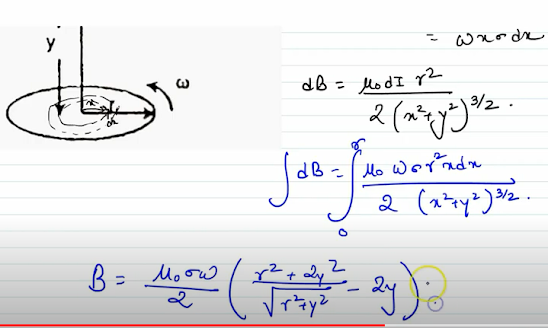 = ωxσdx
y
ω
x
dx
dB = μ₀dI r² / 2 (x²+y²)^3/2 .
∫dB = ∫₀^r μ₀ ωσr²xdx / 2 (x²+y²)^3/2 .
B = μ₀σω / 2 ( r² + 2y² / √r²+y² - 2y ) .